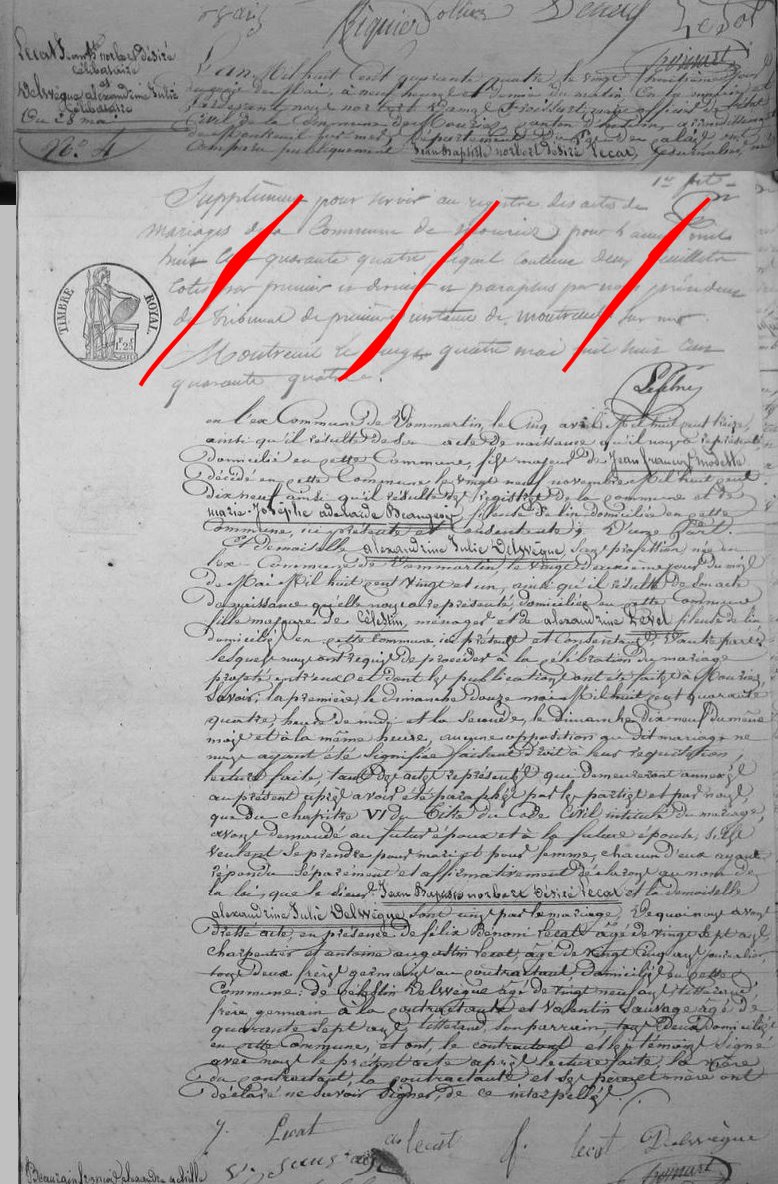 Lecat Jean Bte norbert désiré
célibataire
et
Delwèque alexandrine Julie
Célibataire
Du 28 mai
N°. 4
L'an Mil huit Cent quarante quatre, le vingt huitième jour
du mois de Mai, à neuf heures et demie du matin
Civil de la Commune de Mouriez, canton d'hesdin, arrondissement
de Montreuil sur mer, Département du
publiquement Jean Baptiste norbert désiré Lecat
Supplément pour servir au registre des actes de
mariages de la Commune de Mouriez pour l'année mil
huit cent quarante quatre, lequel contient deux feuillets
cotés par premier et dernier et paraphés par nous président
du Tribunal de première instance de Montreuil sur mer.
Montreuil le vingt quatre mai mil huit cent
quarante quatre.
TIMBRE ROYAL
en l'ex Commune de Dommartin, le Cinq avril Mil huit cent treize,
ainsi qu'il résulte de son acte de naissance qu'il nous a représenté
domicilié en cette Commune, fils majeur de Jean francois modeste
décédé en cette Commune le vingt neuf novembre Mil huit cent
dix neuf ainsi qu'il résulte des registres de la commune et de
marie-Josèphe adélaïde Beaugeois, fileuse de lin domiciliée en cette
Commune, ici présente et consentante, d'une part.
Et demoiselle alexandrine Julie Delwèque, sans profession, née en
l'ex-Commune de Dommartin, le vingt deuxième jour du mois
de Mai Mil huit cent vingt et un, ainsi qu'il résulte de son acte
de naissance qu'elle nous a représenté, domiciliée en cette commune
fille majeure de Célestin, ménager et de alexandrine Level fileuse de lin
domiciliés en cette commune ici présents et Consentants, d'autre part,
lesquels nous ont requis de procéder à la célébration du mariage
projeté entr'eux et dont les publications ont été faites à Mouriez,
Savoir, la première, le dimanche douze mai Mil huit cent quarante
quatre, heure de midi et la seconde, le dimanche dix neuf du même
mois et à la même heure, aucune opposition au dit mariage ne
nous ayant été signifiée faisant droit à leur réquisition,
lecture faite, tant des actes représentés qui demeureront annexés
au présent après avoir été paraphés par les parties et par nous,
que du chapitre VI du Titre du Code Civil intitulé du mariage,
avons demandé au futur époux et à la future épouse, s'ils
veulent se prendre pour mari et pour femme, chacun d'eux ayant
répondu séparément et affirmativement déclarons au nom de
la loi, que le sieur Jean Baptiste norbert Désiré Lecat et la demoiselle
alexandrine Julie Delwèque sont unis par le mariage. De quoi nous avons
dressé acte en présence de félix Bénoni Lecat âgé de vingt sept ans,
charpentier et antoine augustin Lecat, âgé de vingt cinq ans journalier,
tous deux frères germains au contractant domiciliés en cette
Commune: de Célestin Delwèque âgé de vingt neuf ans, tisserand
frère germain à la contractante et Valentin Sauvage âgé de
quarante sept ans, tisserand, son parrain, tous deux domiciliés
en cette Commune, et ont, le contractant et les témoins signé
avec nous le présent acte après lecture faite, la mère
du contractant, la contractante et ses père et mère ont
déclaré ne savoir signer, de ce interpellés.
J. Lecat
a Lecat
f. Lecat
Delwèque
V. Sauvage